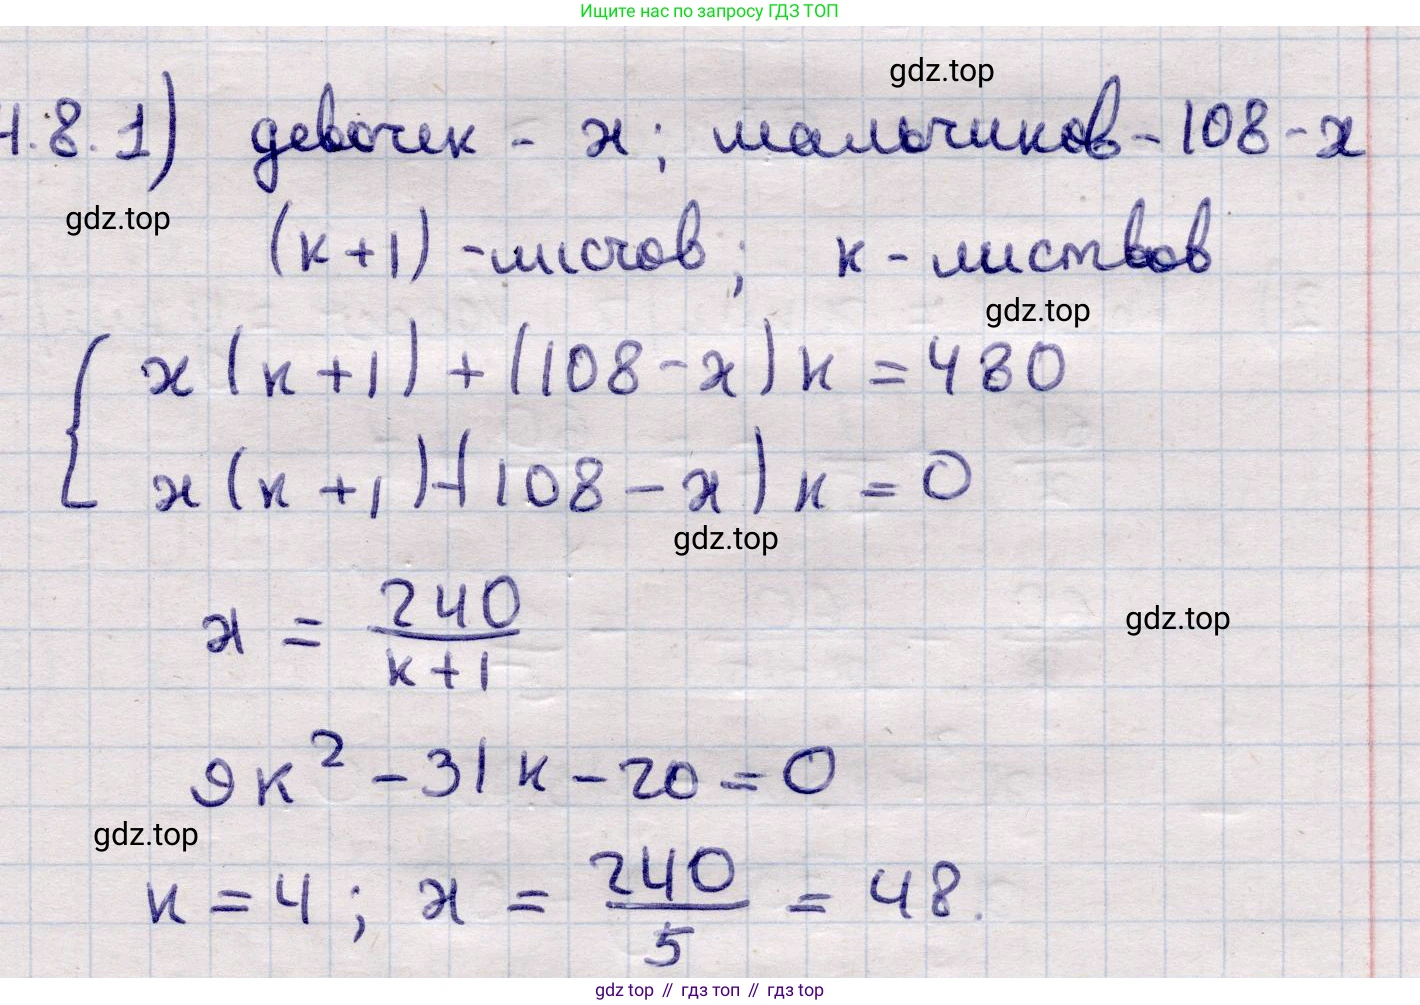 Ищите нас по запросу ГДЗ ТОП
gdz.top
4.8.1) девочек - x; мальчиков - 108 - x
gdz.top
(k+1) - листов; k - листвов
gdz.top
x(k+1) + (108 - x)k = 480
x(k+1) - (108 - x)k = 0
gdz.top
x = 240/(k+1)
gdz.top
9k² - 31k - 20 = 0
gdz.top
k = 4; x = 240/5 = 48.
gdz top // гдз топ // gdz top